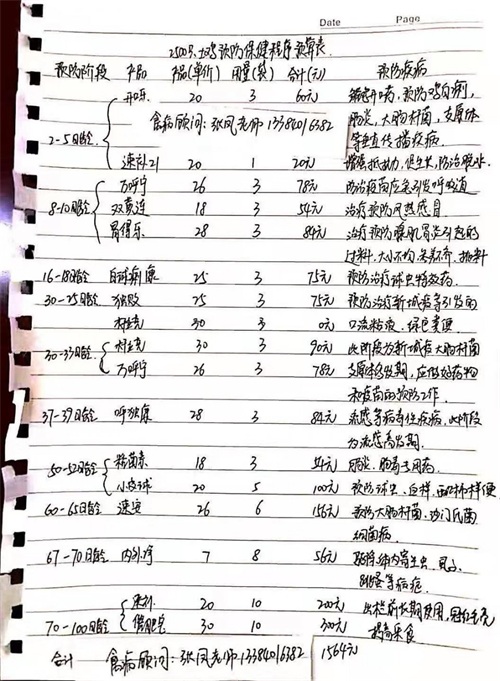 Date Page
2500只土鸡预防保健程序预算表
预防阶段 产品 产品(单价) 用量(袋) 合计(元) 预防疾病
2-5日龄 开口乐 20 3 60元 雏鸡开口药,预防鸡白痢,
禽病顾问:张凤老师13384016382 肠炎,大肠杆菌,支原体
等垂直传播疾病.
速补21 20 1 20元 增强抵抗力,促生长,防治脱水
8-10日龄 万呼宁 26 3 78元 防治疫苗应激引发呼吸道
双黄连 18 3 54元 治疗预防风热感冒
胃得乐 28 3 84元 治疗预防腺肌胃炎引起的
过料,大小不均
16-18日龄 白球痢康 25 3 75元 预防治疗球虫特效药.
30-25日龄 独股 25 3 75元 预防治疗新城疫等引发的
杆克 30 3 0元 口流粘液,绿色粪便
30-33日龄 杆克 30 3 90元 此阶段为新城疫大肠杆菌
万呼宁 26 3 78元 支原体多发期,应做好药物
和疫苗的预防工作.
37-39日龄 呼独康 28 3 84元 流感等病毒性疾病,此阶段
为流感高发期.
50-52日龄 粘菌素 18 3 54元 肠炎,肠毒专用药
小皮球 20 5 100元 预防球虫,血样,西红柿样便
60-65日龄 速淀 26 6 156元 预防大肠杆菌,沙门氏菌
细菌病
67-70日龄 内外净 7 8 56元 驱除体内寄生虫
等病症
70-100日龄 20 10 200元 出栏前长期使用,冠红毛亮
催肥宝 30 10 300元 提高采食
合计 禽病顾问:张凤老师13384016382 1564元